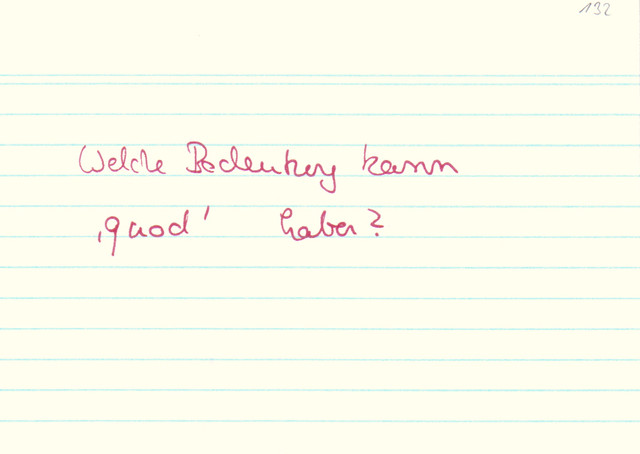 132
Welche Bedeutung kann
‚quod' haben?